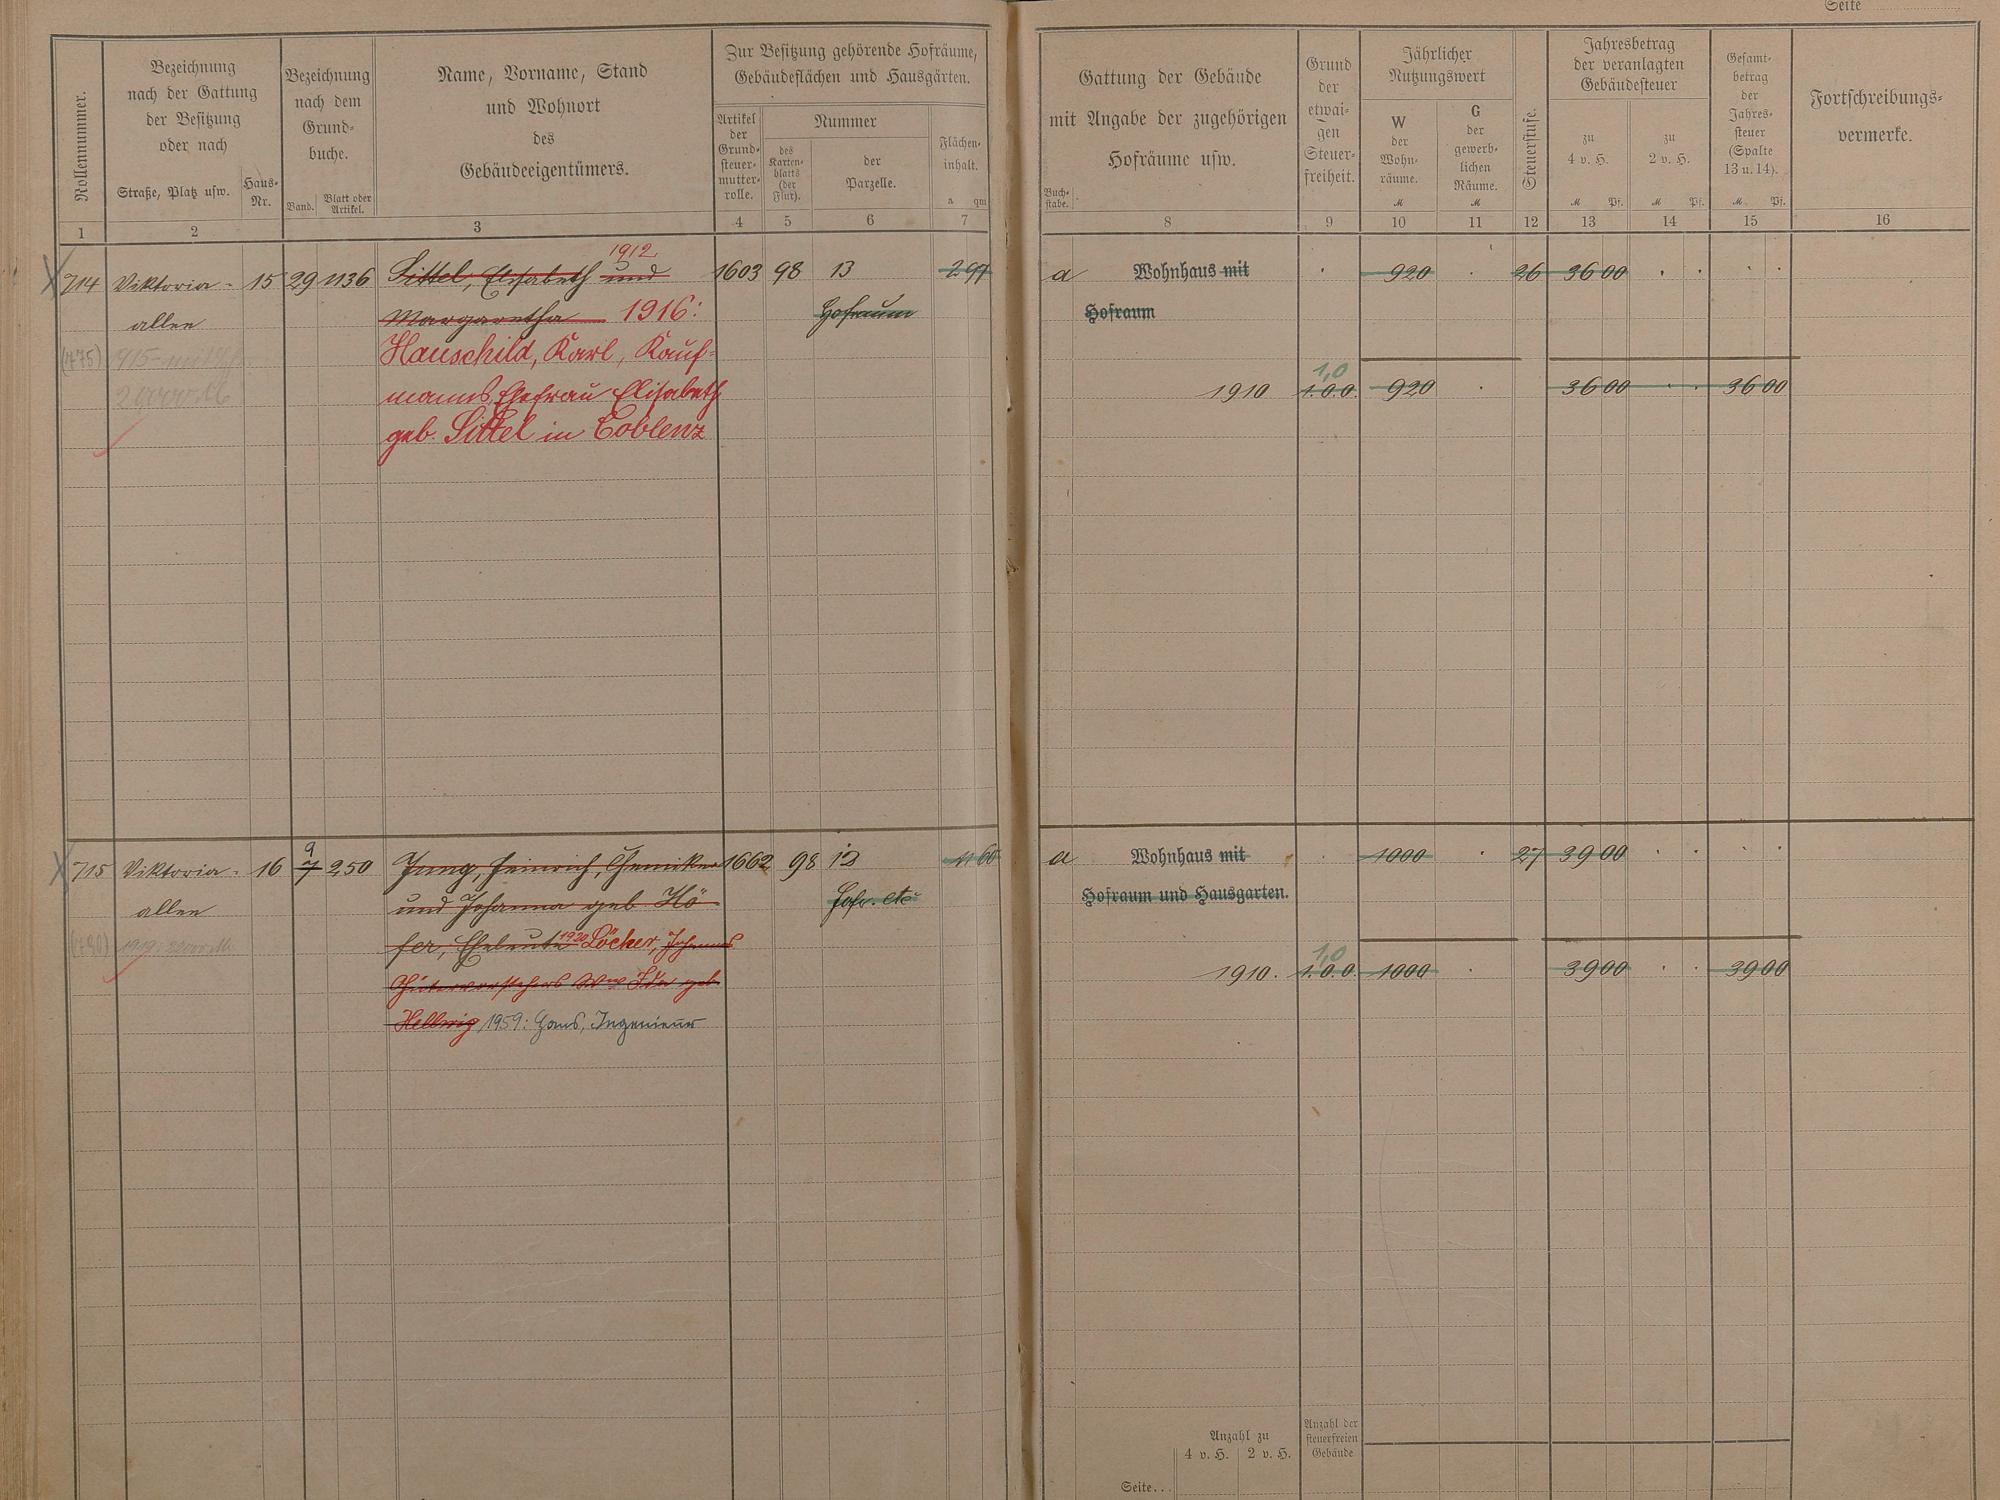 Seite
Rollennummer.
Bezeichnung
nach der Gattung
der Besitzung
oder nach
Straße, Platz usw.
Haus-
Nr.
Bezeichnung
nach dem
Grund-
buche.
Band.
Blatt oder
Artikel.
Name, Vorname, Stand
und Wohnort
des
Gebäudeeigentümers.
Zur Besitzung gehörende Hofräume,
Gebäudeflächen und Hausgärten.
Artikel
der
Grund-
steuer-
mutter-
rolle.
Nummer
des
Karten-
blatts
(der
Flur).
der
Parzelle.
Flächen-
inhalt.
a qm
Gattung der Gebäude
mit Angabe der zugehörigen
Hofräume usw.
Buch-
stabe.
Grund
der
etwai-
gen
Steuer-
freiheit.
Jährlicher
Nutzungswert
W
der
Wohn-
räume.
M
G
der
gewerb-
lichen
Räume.
M
Steuerstufe.
Jahresbetrag
der veranlagten
Gebäudesteuer
zu
4 v. H.
M Pf.
zu
2 v. H.
M Pf.
Gesamt-
betrag
der
Jahres-
steuer
(Spalte
13 u. 14).
M Pf.
Fortschreibungs-
vermerke.
1 2 3 4 5 6 7 8 9 10 11 12 13 14 15 16
1912
714 Viktoria- 15 29 1136 Sittel, Elisabeth und 1603 98 13 2 97 a Wohnhaus mit 920 26 36 00
allee Margaretha 1916: Hofraum Hofraum
(475) Hauschild, Karl, Kauf-
1,0
manns, Ehefrau Elisabeth 1910 1.0.0. 920 36 00 36 00
geb. Sittel in Coblenz
9
715 Viktoria- 16 7 250 Jung, Heinrich, Chemiker 1662 98 12 60 a Wohnhaus mit 1000 27 39 00
allee und Johanna geb. Hö- Hofr. etc Hofraum und Hausgarten.
fer, Eheleute 1920 Löcher, Johannes
1,0
Wwe Ida geb. 1910. 1.0.0. 1000 39 00 39 00
Hellwig 1959: Hans, Ingenieur
Anzahl zu
4 v. H. 2 v. H.
Anzahl der
steuerfreien
Gebäude
Seite...